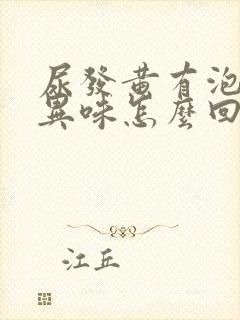 尿發黃有泡
異味怎麼回
江丘